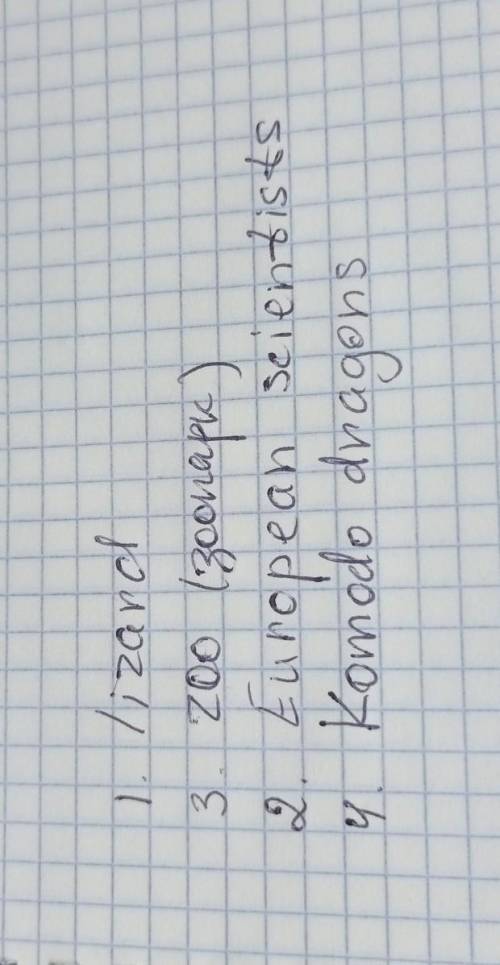 1. lizard
3. zoo (зоопарк)
2. European scientists
4. Komodo dragons